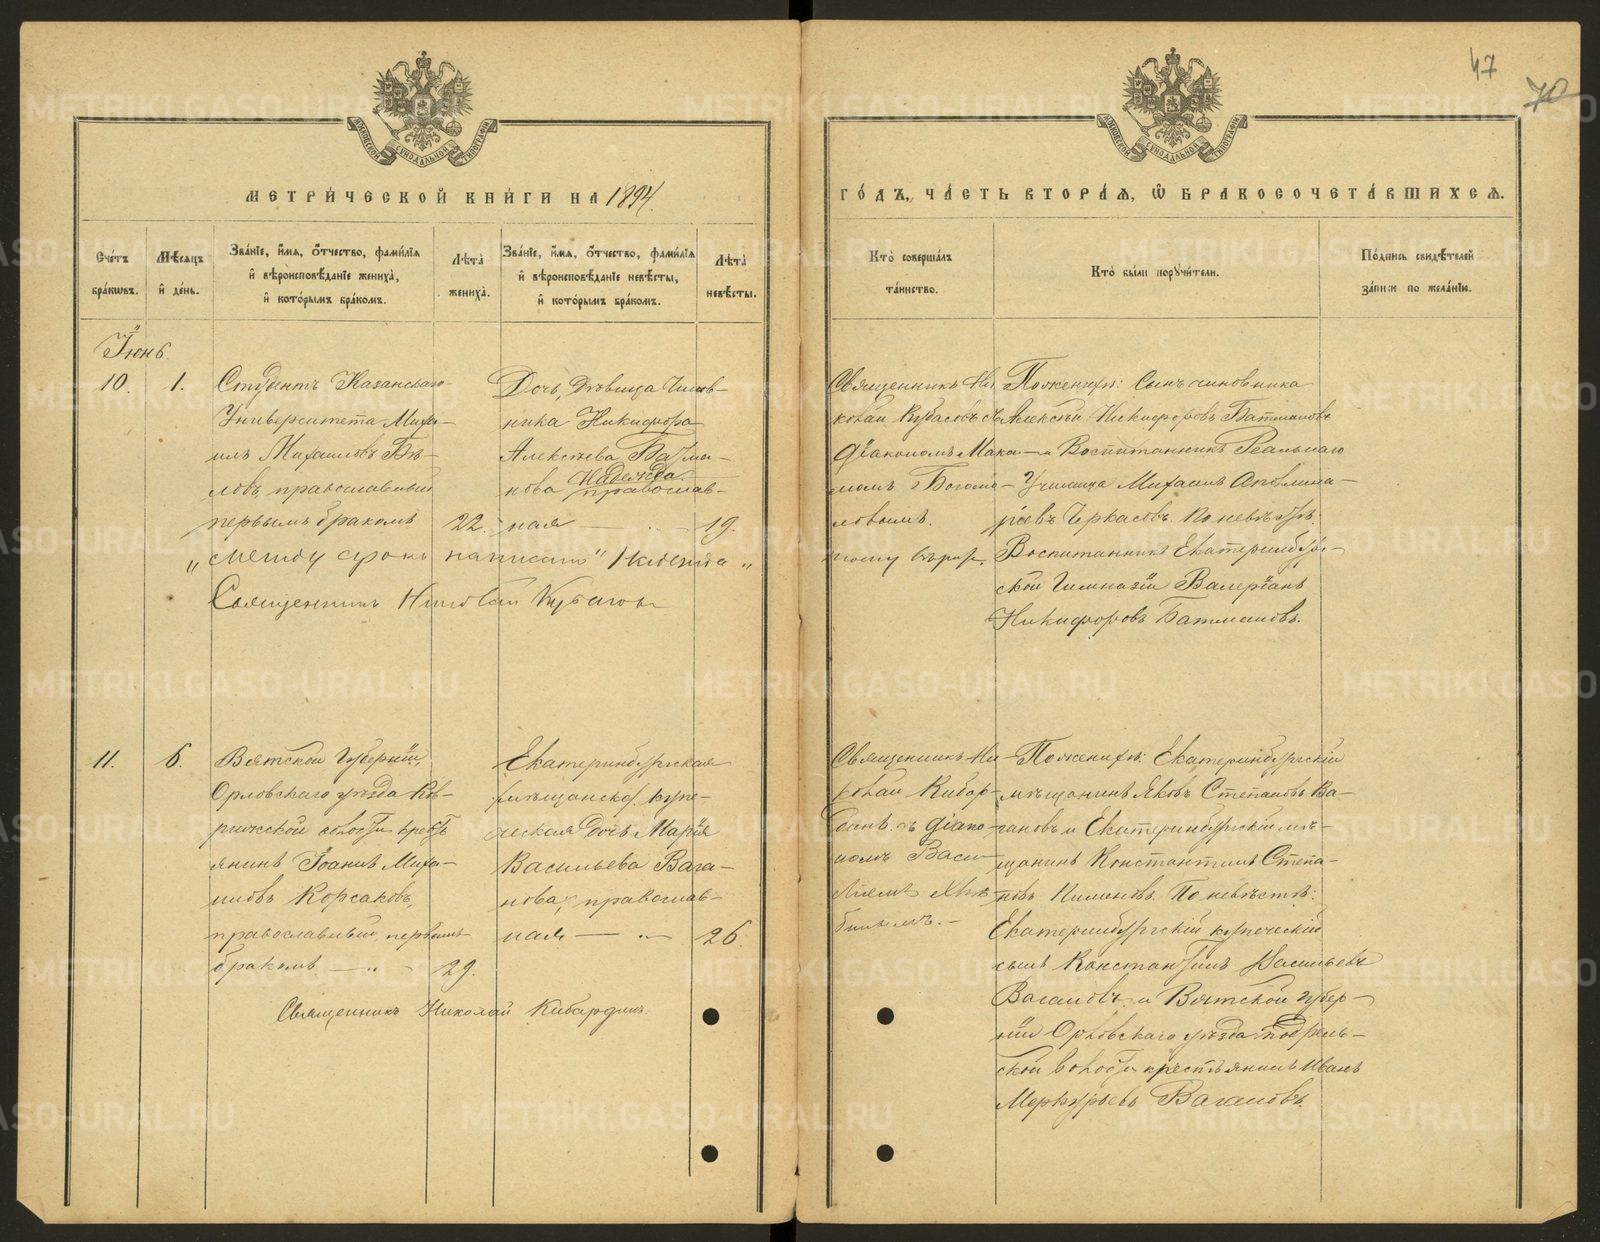 47
70
МОСКОВСКОЙ СУНОДАЛЬНОЙ ТИПОГРАФІИ
МОСКОВСКОЙ СУНОДАЛЬНОЙ ТИПОГРАФІИ
МЕТРИЧЕСКОЙ КНИГИ НА 1894.
Счетъ браковъ.
Мѣсяцъ и день.
Званіе, имя, отчество, фамилія
и вѣроисповѣданіе жениха,
и которымъ бракомъ.
Лѣта
жениха.
Званіе, имя, отчество, фамилія
и вѣроисповѣданіе невѣсты,
и которымъ бракомъ.
Лѣта
невѣсты.
Іюнь.
10.
1.
Студентъ Казанскаго
Университета Миха-
илъ Михаиловъ Бѣ-
ловъ, православный
первымъ бракомъ
22.
Дочь, дѣвица Чинов-
ника Никифора
Алексѣева Батма-
нова Надежда
православ-
ная
19.
"между строкъ написано" Надежда"
Священникъ Николай
11.
6.
Вятской Губерніи,
Орловскаго уѣзда
волости кресть-
янинъ Іоаннъ Миха-
иловъ Корсаковъ,
православный, первымъ
бракомъ
29.
Екатеринбургская
мѣщанско купе-
ческая дочь Марія
Васильева Вага-
нова, православ-
ная
26.
Священникъ Николай Кибардинъ.
ГОДЪ, ЧАСТЬ ВТОРАЯ, Ѡ БРАКОСОЧЕТАВШИХСЯ.
Кто совершалъ
таинство.
Кто были поручители.
Подпись свидѣтелей
записи по желанію.
Священникъ Ни
колай съ
діакономъ Мака-
ромъ Богомо-
ловымъ.
По женихѣ: Сынъ чиновника
Алексѣй Никифоровъ Батмановъ
и Воспитанникъ Реальнаго
Училища Михаилъ Аполлина-
ріевъ Черкасовъ. По невѣстѣ:
Воспитанникъ Екатеринбург-
ской Гимназіи Валеріанъ
Никифоровъ Батмановъ.
Священникъ Ни
колай Кибар-
динъ съ діако-
номъ Васи-
ліемъ
По женихѣ: Екатеринбургскій
мѣщанинъ Яковъ Степановъ Ва-
гановъ и Екатеринбургскій мѣ-
щанинъ Константинъ Степа-
новъ Пименовъ. По невѣстѣ:
Екатеринбургскій купеческій
сынъ Константинъ Васильевъ
Вагановъ и Вятской губер-
ніи Орловскаго уѣзда Подрель-
ской волости крестьянинъ Иванъ
Меркурьевъ Вагановъ.
METRIKI.GASO-URAL.RU